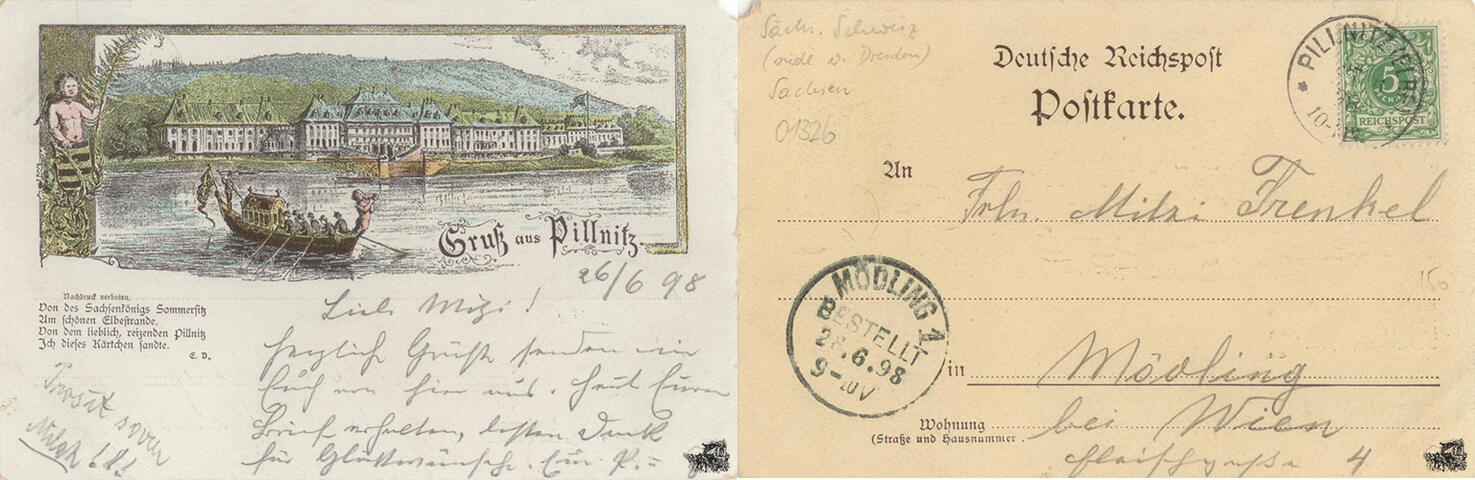 Gruß aus Pillnitz.
26/6 98
Nachdruck verboten.
Von des Sachsenkönigs Sommersitz
Am schönen Elbestrande.
Von dem lieblich, reizenden Pillnitz
Ich dieses Kärtchen sandte.
E. D.
Liebe Mizi!
Herzliche Grüße senden wir
Euch von hier aus. Heut Euren
Brief erhalten, besten Dank
für Glückwünsche.
Prosit
Sächs. Schweiz
(südl v. Dresden)
Sachsen
01326
Deutsche Reichspost
Postkarte.
PILLNITZ (ELBE)
5
REICHSPOST
An
Frln. Mitzi Frenkel
MÖDLING 1
BESTELLT
28.6.98
9-10V
150
in Mödling
Wohnung bei Wien
(Straße und Hausnummer
4